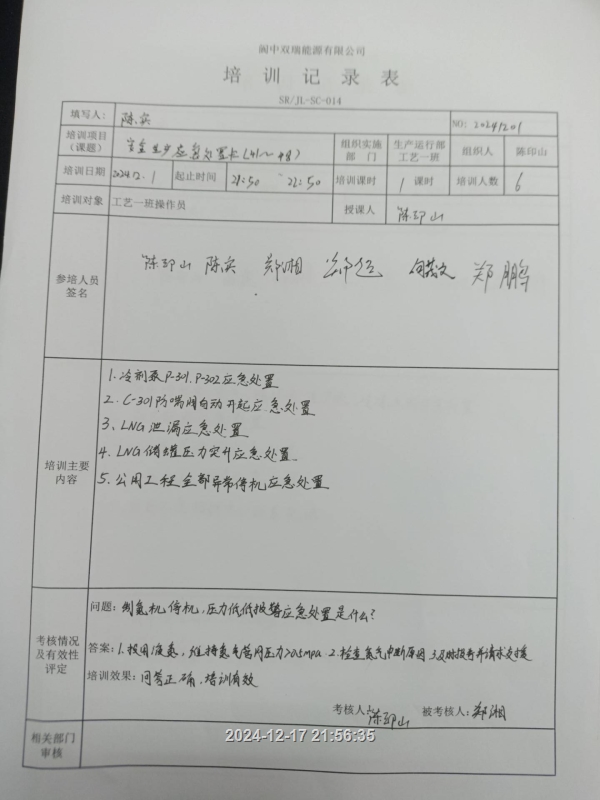 阆中双瑞能源有限公司
培训记录表
SR/JL-SC-014
填写人： 陈实 NO: 20241201
培训项目（课题） 安全生产应急处置卡(41～48) 组织实施部门 生产运行部工艺一班 组织人 陈印山
培训日期 2024.12.1 起止时间 21:50 22:50 培训课时 1 课时 培训人数 6
培训对象 工艺一班操作员 授课人 陈印山
参培人员签名 陈印山 陈实 郑湘 郑鹏
培训主要内容
1.冷剂泵P-301.P-302应急处置
2.C-301防喘阀自动开起应急处置
3、LNG泄漏应急处置
4.LNG储罐压力突升应急处置
5.公用工程全部异常停机应急处置
考核情况及有效性评定
问题：制氮机停机,压力低低报警应急处置是什么?
答案：1.投用液氮,维持氮气管网压力>0.5mpa 2.检查氮气中断原因 3.及时报告并请求支援
培训效果：问答正确,培训有效
考核人：陈印山 被考核人：郑湘
2024-12-17 21:56:35
相关部门审核